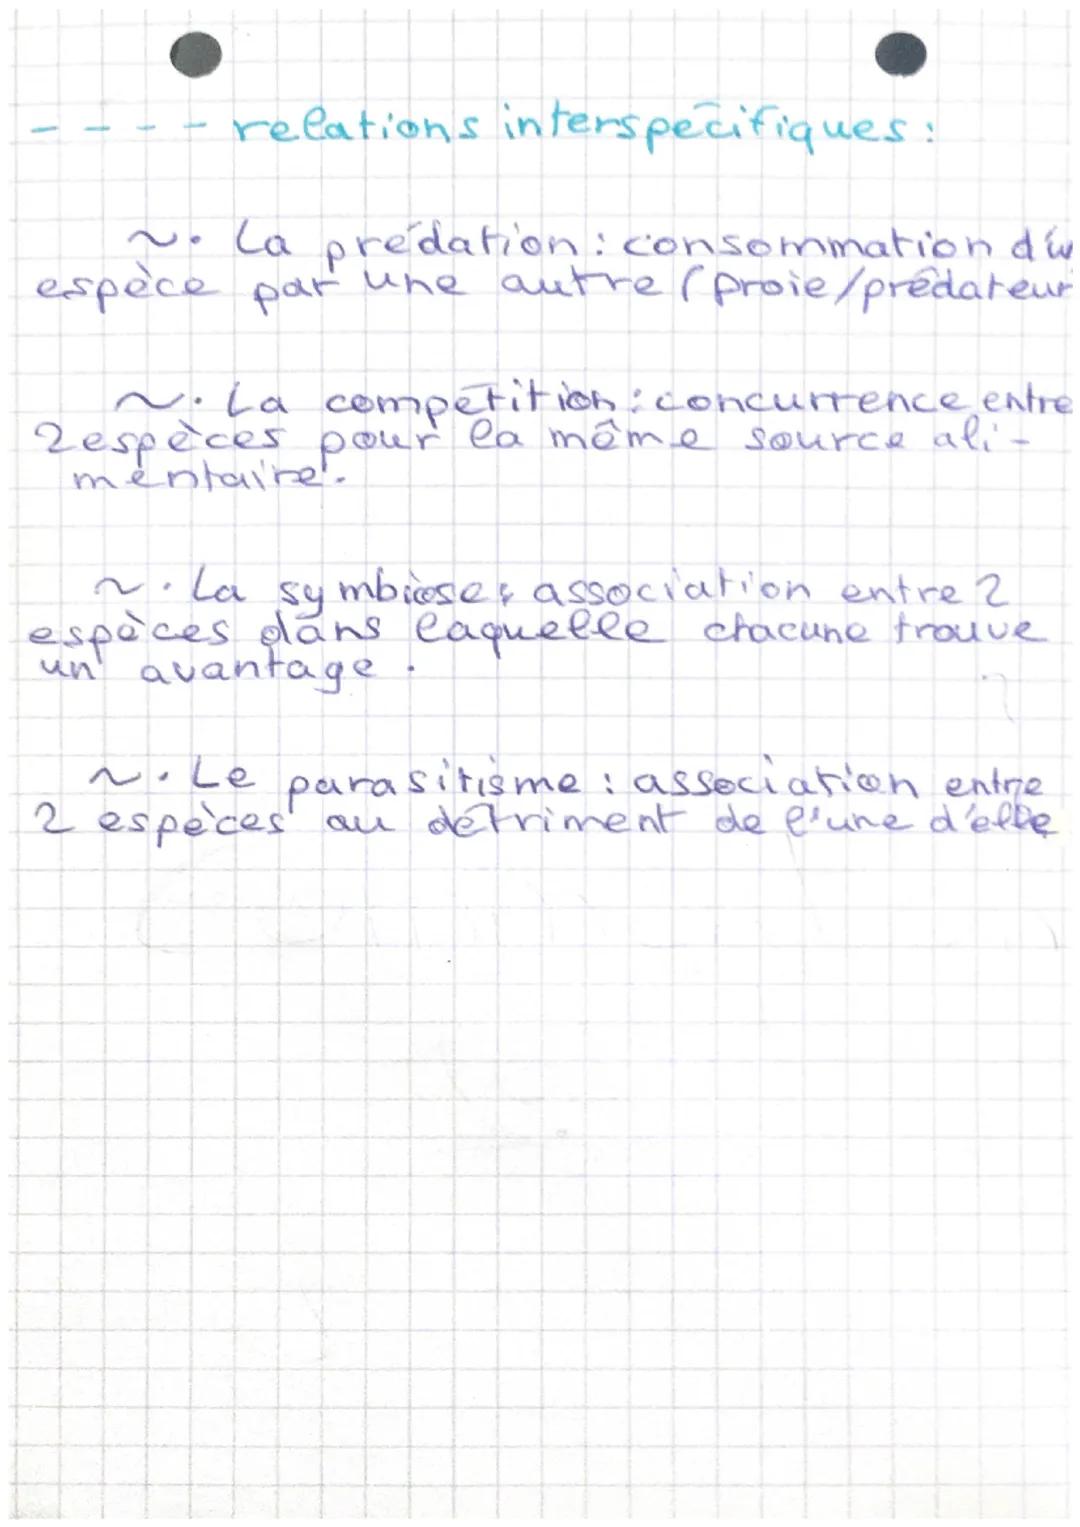 ---- relations interspécifiques :
~. La prédation : consommation
espèce par une autre (proie/prédateur
~. La compétition : concurrence entre
2 espèces pour la même source ali-
mentaire.
~. La symbiose : association entre 2
espèces dans laquelle chacune trouve
un avantage.
~. Le parasitisme : association entre
2 espèces au détriment de l'une d'elle